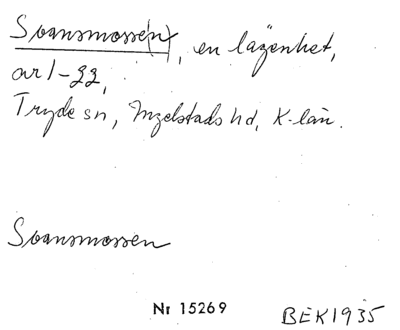 Svansmosse(n), en lägenhet,
arl-gg,
Tryde sn, Ingelstads hd, K-län.
Svansmossen
Nr 15269
BEK1935